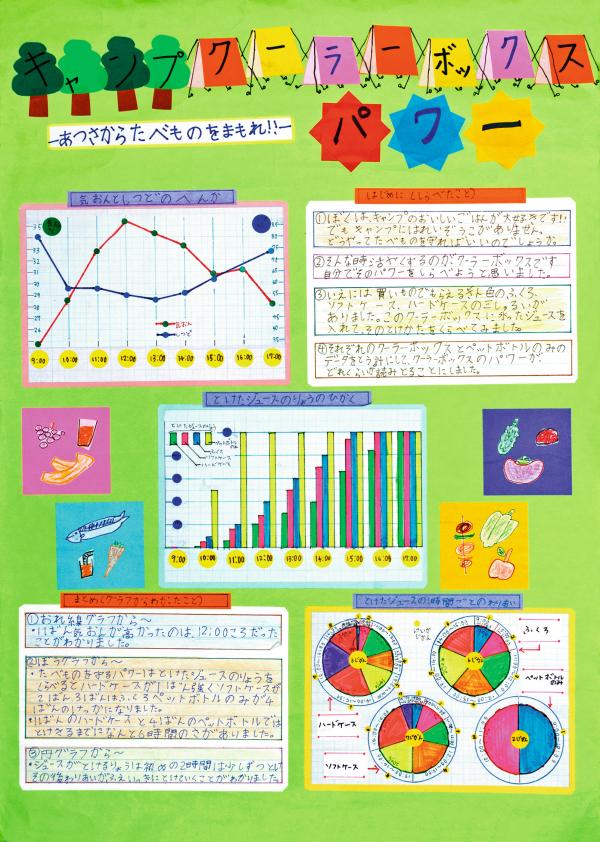 キャンプクーラーボックス
パワー
ーあつさからたべものをまもれ!!ー
気おんとしつどのへんか
気おん
しつど
9:00 10:00 11:00 12:00 13:00 14:00 15:00 16:00 17:00
はじめに(しらべたこと)
①ぼくは、キャンプのおいしいごはんが大好きです!!
でもキャンプにはれいぞうこがありません。
どうやってたべものを守ればいいのでしょうか。
②そんな時に
するのがクーラーボックスです
自分でそのパワーをしらべようと思いました。
③いえには買いものでもらえるぎん色のふくろ、
ソフトケース、ハードケースの三しゅるいが
ありました。このクーラーボックスに氷ったジュースを
入れて、そのとけかたをくらべてみました。
④それぞれのクーラーボックスとペットボトルのみの
データをとう計にして、クーラーボックスのパワーが、
どれくらいか読みとることにしました。
とけたジュースのりょうのひかく
とけたジュースのりょう
ペットボトルのみ
ふくろ
ソフトケース
ハードケース
9:00 10:00 11:00 12:00 13:00 14:00 15:00 16:00 17:00
まとめ(グラフからわかったこと)
①おれ線グラフから〜
・1ばん気おんが高かったのは、12:00ころだった
ことがわかりました。
②ぼうグラフから〜
・たべものをまもるパワーはとけたジュースのりょうを
くらべるとハードケースが1ばん強くソフトケースが
2ばん、3ばんはふくろ、ペットボトルのみが4
ばんの
になりました。
・1ばんのハードケースと4ばんのペットボトルでは
とけきるまでになんと6時間のさがありました。
③円グラフから〜
・ジュースがとけるりょうは初めの2時間は少しずつとけ
その後わりあいがふえ、いっきにとけていくことがわかりました。
とけたジュースの1時間ごとのわりあい
ふくろ
ペットボトル
のみ
ハードケース
ソフトケース
8じかん
6じかん
7じかん
2じかん